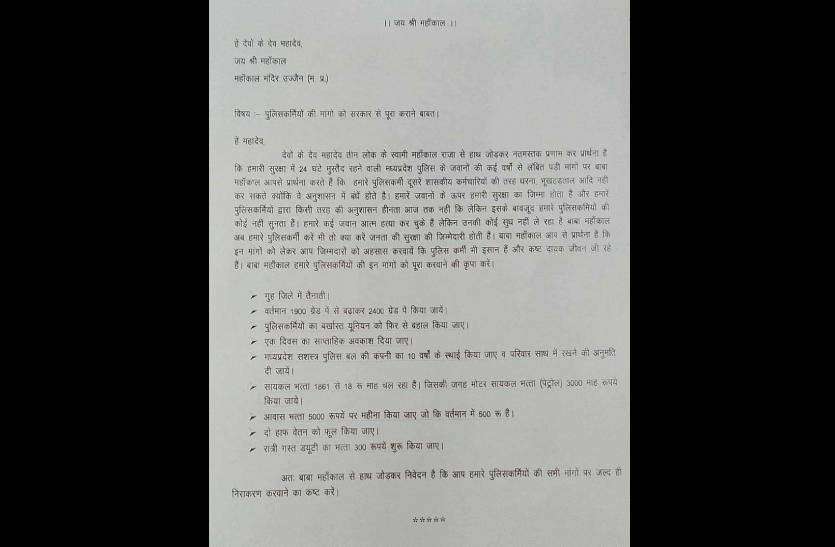 ।। जय श्री महाँकाल ।।
हे देवों के देव महादेव,
जय श्री महाँकाल
महाँकाल मंदिर उज्जैन (म. प्र.)
विषय :- पुलिसकर्मियों की मांगो को सरकार से पूरा कराने बाबत।
हे महादेव,
देवों के देव महादेव तीन लोक के स्वामी महाँकाल राजा से हाथ जोडकर नतमस्तक प्रणाम कर प्रार्थना है
कि हमारी सुरक्षा में 24 घंटे मुस्तैद रहने वाली मध्यप्रदेश पुलिस के जवानों की कई वर्षो से लंबित पडी मांगो पर बाबा
महाँकाल आपसे प्रार्थना करते है कि हमारे पुलिसकर्मी दूसरे शासकीय कर्मचारियों की तरह धरना, भूखहडताल आदि नही
कर सकते क्योंकि वे अनुशासन में बंधे होते है। हमारे जवानों के ऊपर हमारी सुरक्षा का जिम्मा होता है और हमारे
पुलिसकर्मियों द्वारा किसी तरह की अनुशासन हीनता आज तक नही कि लेकिन इसके बावजूद हमारे पुलिसकर्मियों की
कोई नही सुनता है। हमारे कई जवान आत्म हत्या कर चुके हैं लेकिन उनकी कोई सुध नही ले रहा है बाबा महाँकाल
अब हमारे पुलिसकर्मी करें भी तो क्या करें जनता की सुरक्षा की जिम्मेदारी होती है। बाबा महाँकाल आप से प्रार्थना है कि
इन मांगो को लेकर आप जिम्मदारों को अहसास करवायें कि पुलिस कर्मी भी इंसान हैं और कष्ट दायक जीवन जी रहे
है। बाबा महाँकाल हमारे पुलिसकर्मियों की इन मांगो को पूरा करवाने की कृपा करें।
➢ गृह जिले में तैनाती।
➢ वर्तमान 1900 ग्रेड पे से बढाकर 2400 ग्रेड पे किया जायें।
➢ पुलिसकर्मियों का बर्खास्त यूनियन को फिर से बहाल किया जाए।
➢ एक दिवस का साप्ताहिक अवकाश दिया जाए।
➢ मध्यप्रदेश सशस्त्र पुलिस बल की कंपनी का 10 वर्षो के स्थाई किया जाए व परिवार साथ में रखने की अनुमति
दी जायें।
➢ सायकल भत्ता 1861 से 18 रू माह चल रहा है। जिसकी जगह मोटर सायकल भत्ता (पेट्रोल) 3000 माह रूपये
किया जाये।
➢ आवास भत्ता 5000 रूपयें पर महीना किया जाए जो कि वर्तमान में 500 रू है।
➢ दो हाफ वेतन को फूल किया जाए।
➢ रात्री गस्त डयूटी का भत्ता 300 रूपयें शुरू किया जाए।
अतः बाबा महाँकाल से हाथ जोडकर निवेदन है कि आप हमारे पुलिसकर्मियों की सभी मांगो पर जल्द ही
निराकरण करवाने का कष्ट करें।
*****